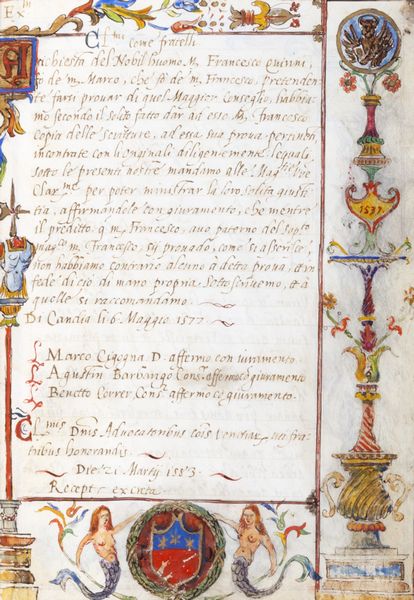 Ex^mi
Cl^mi come fratelli.
Richiesta del Nobil huomo M. Francesco Quirini,
fo de m. Marco, che fo de m. Francesco, pretenden-
te farsi prouar di quel Maggior Conseglio, habbia-
mo secondo il solito fatto dar ad esso M. Francesco
copia delle Scritture, ad essa sua proua pertinenti
incontrate con l'originali diligentemente, lequali
sotto le presenti nostre mandamo alle Mag^tie Vre
Clar^me per poter ministrar la loro solita giusti-
tia, affirmandole con giuramento, che mentre
il predetto q. m. Francesco, auo paterno del
mag^co m. Francesco, sij prouado, come si asserisce
non habbiamo contrario alcuno à detta proua, et in
fede di ciò di mano propria sottoscriuemo, et à
quelle si raccomandamo.
Di Candia li 6. Maggio 1577.
Marco Cigogna D. affermo con iuramento.
Agustin Barbarigo Cons^r affermo cõ giuramento
Benetto Correr Cons^r affermo cõ giuramento.
Cl^mis Dnis Aduocatoribus cõis Venetiar. uti fra-
tribus honorandis.
Die 21 Martij 1583.
Recept
1537.